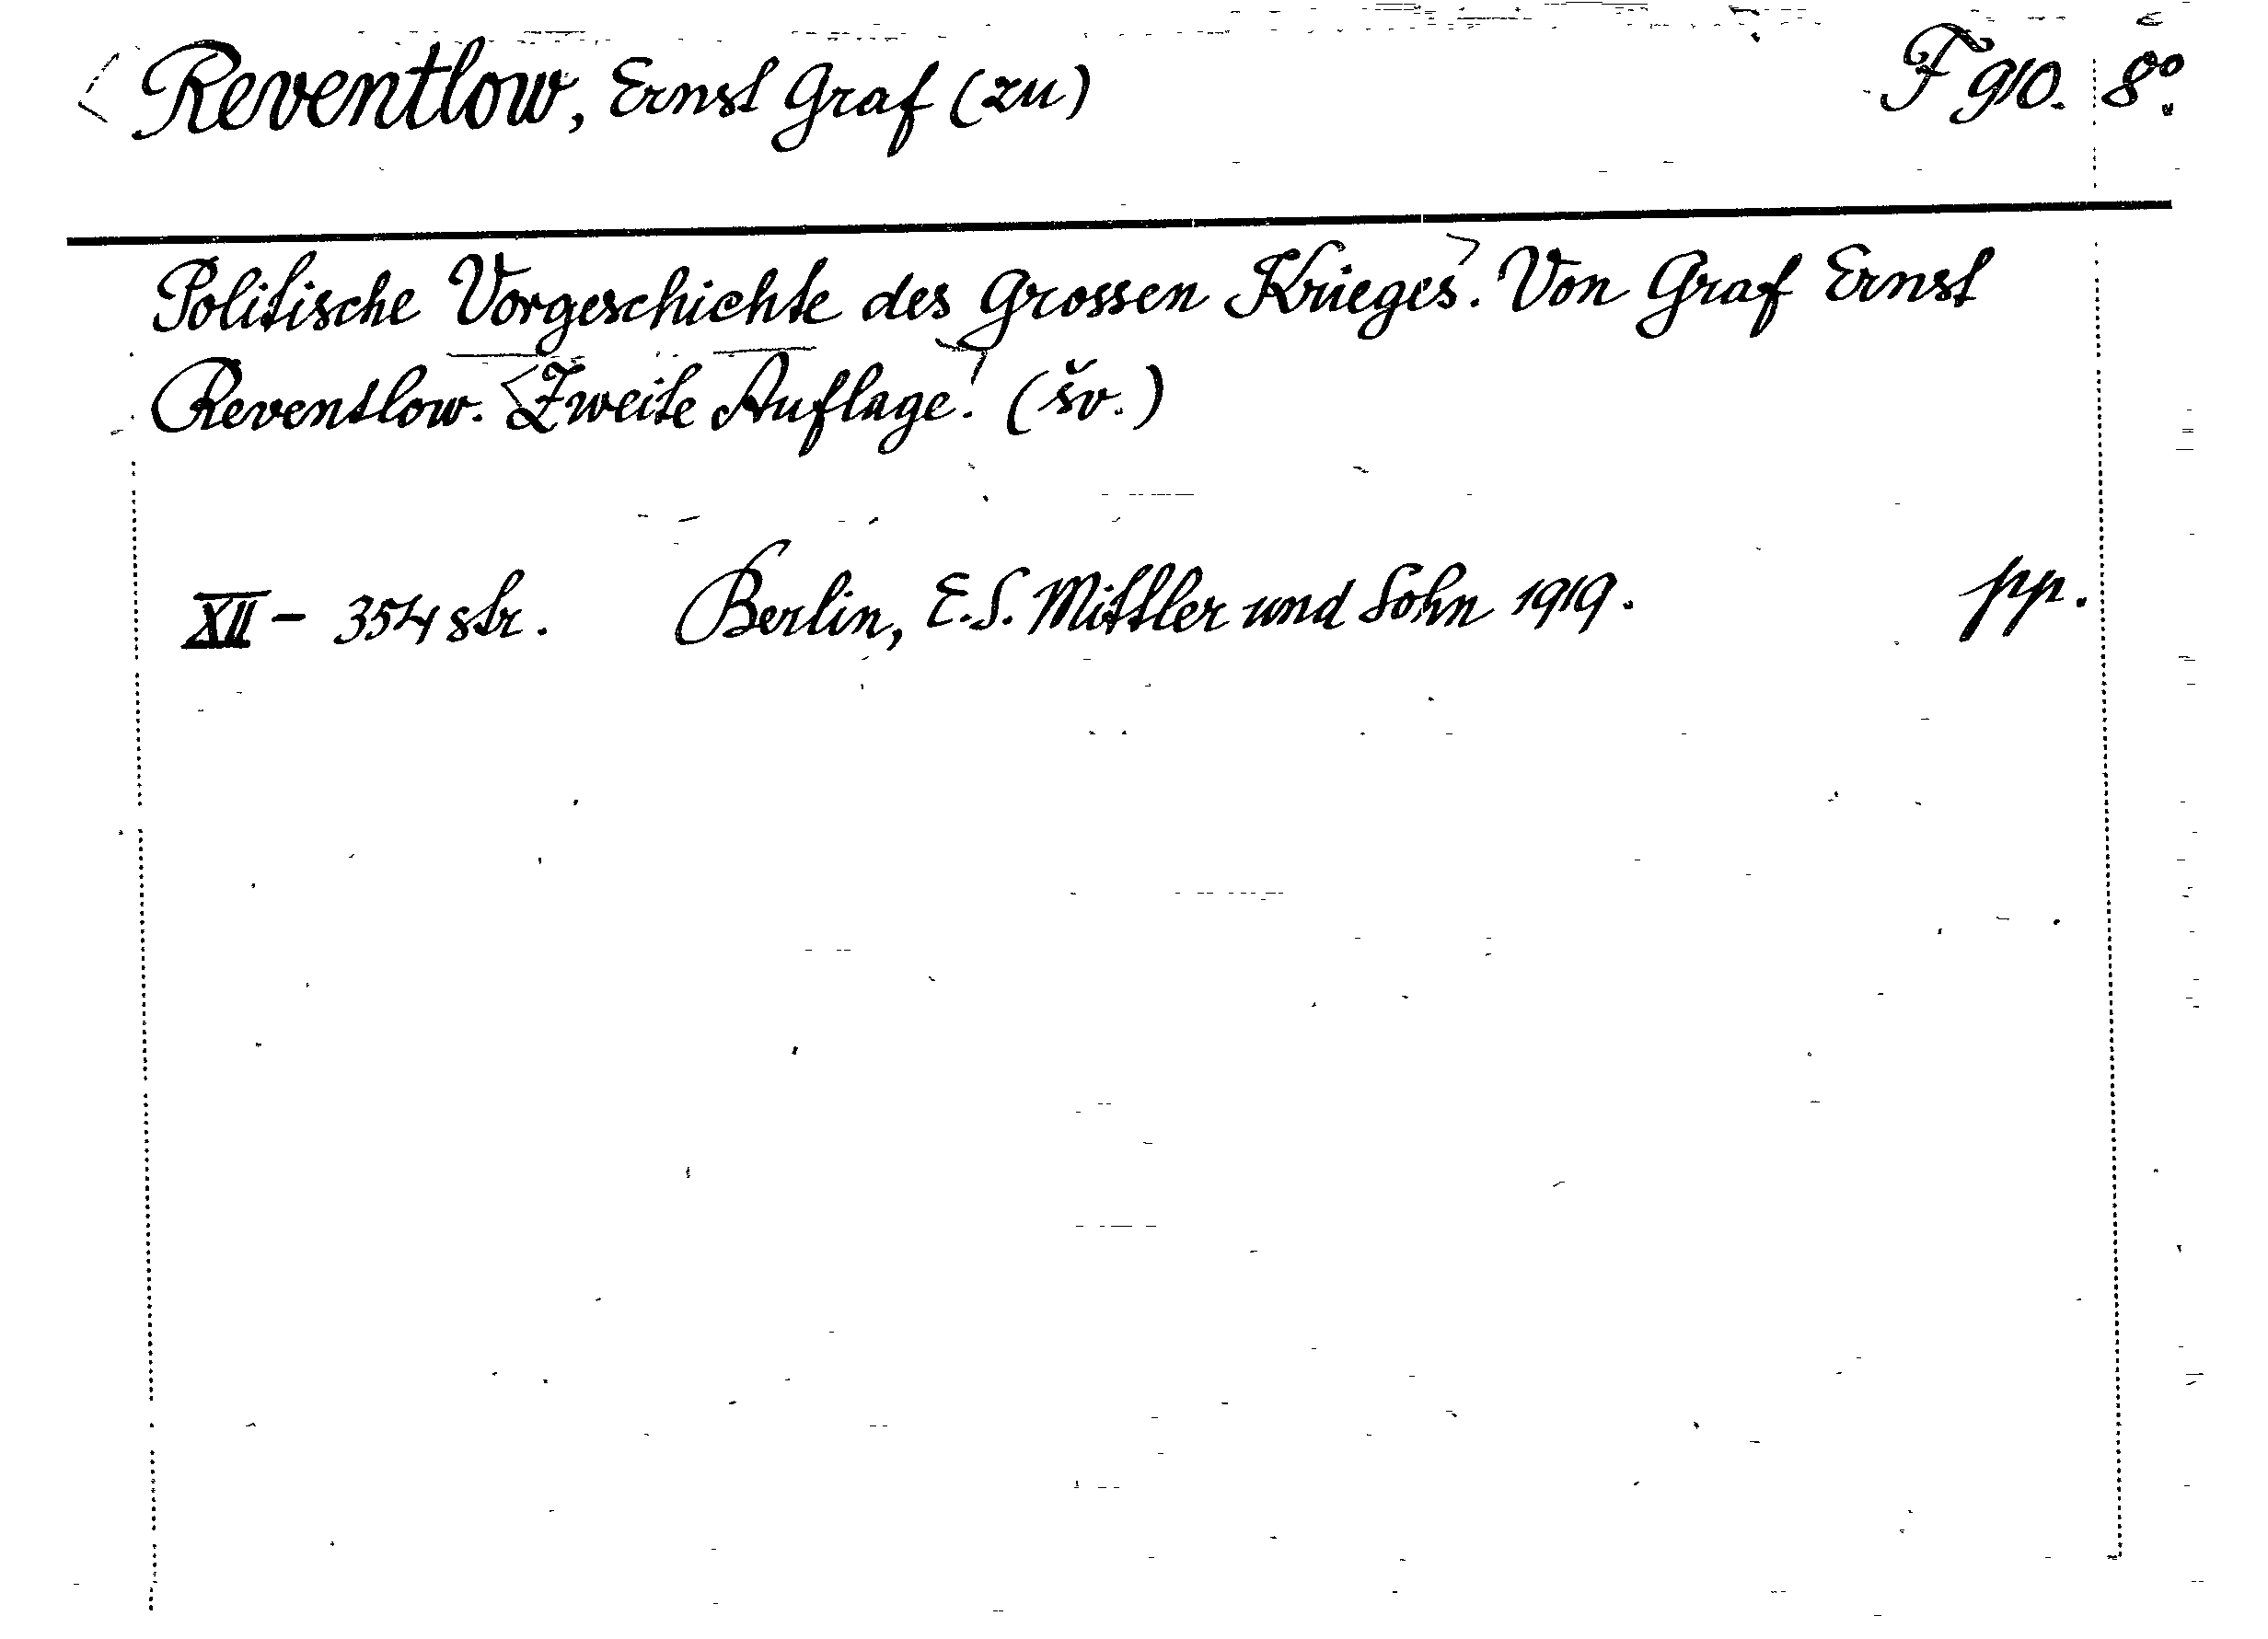 Reventlow, Ernst Graf (zu) F 910. 8º.
Politische Vorgeschichte des Grossen Krieges. Von Graf Ernst
Reventlow. Zweite Auflage. (šv.)
XII - 354 str. Berlin, E.S. Mittler und Sohn 1919. pp.